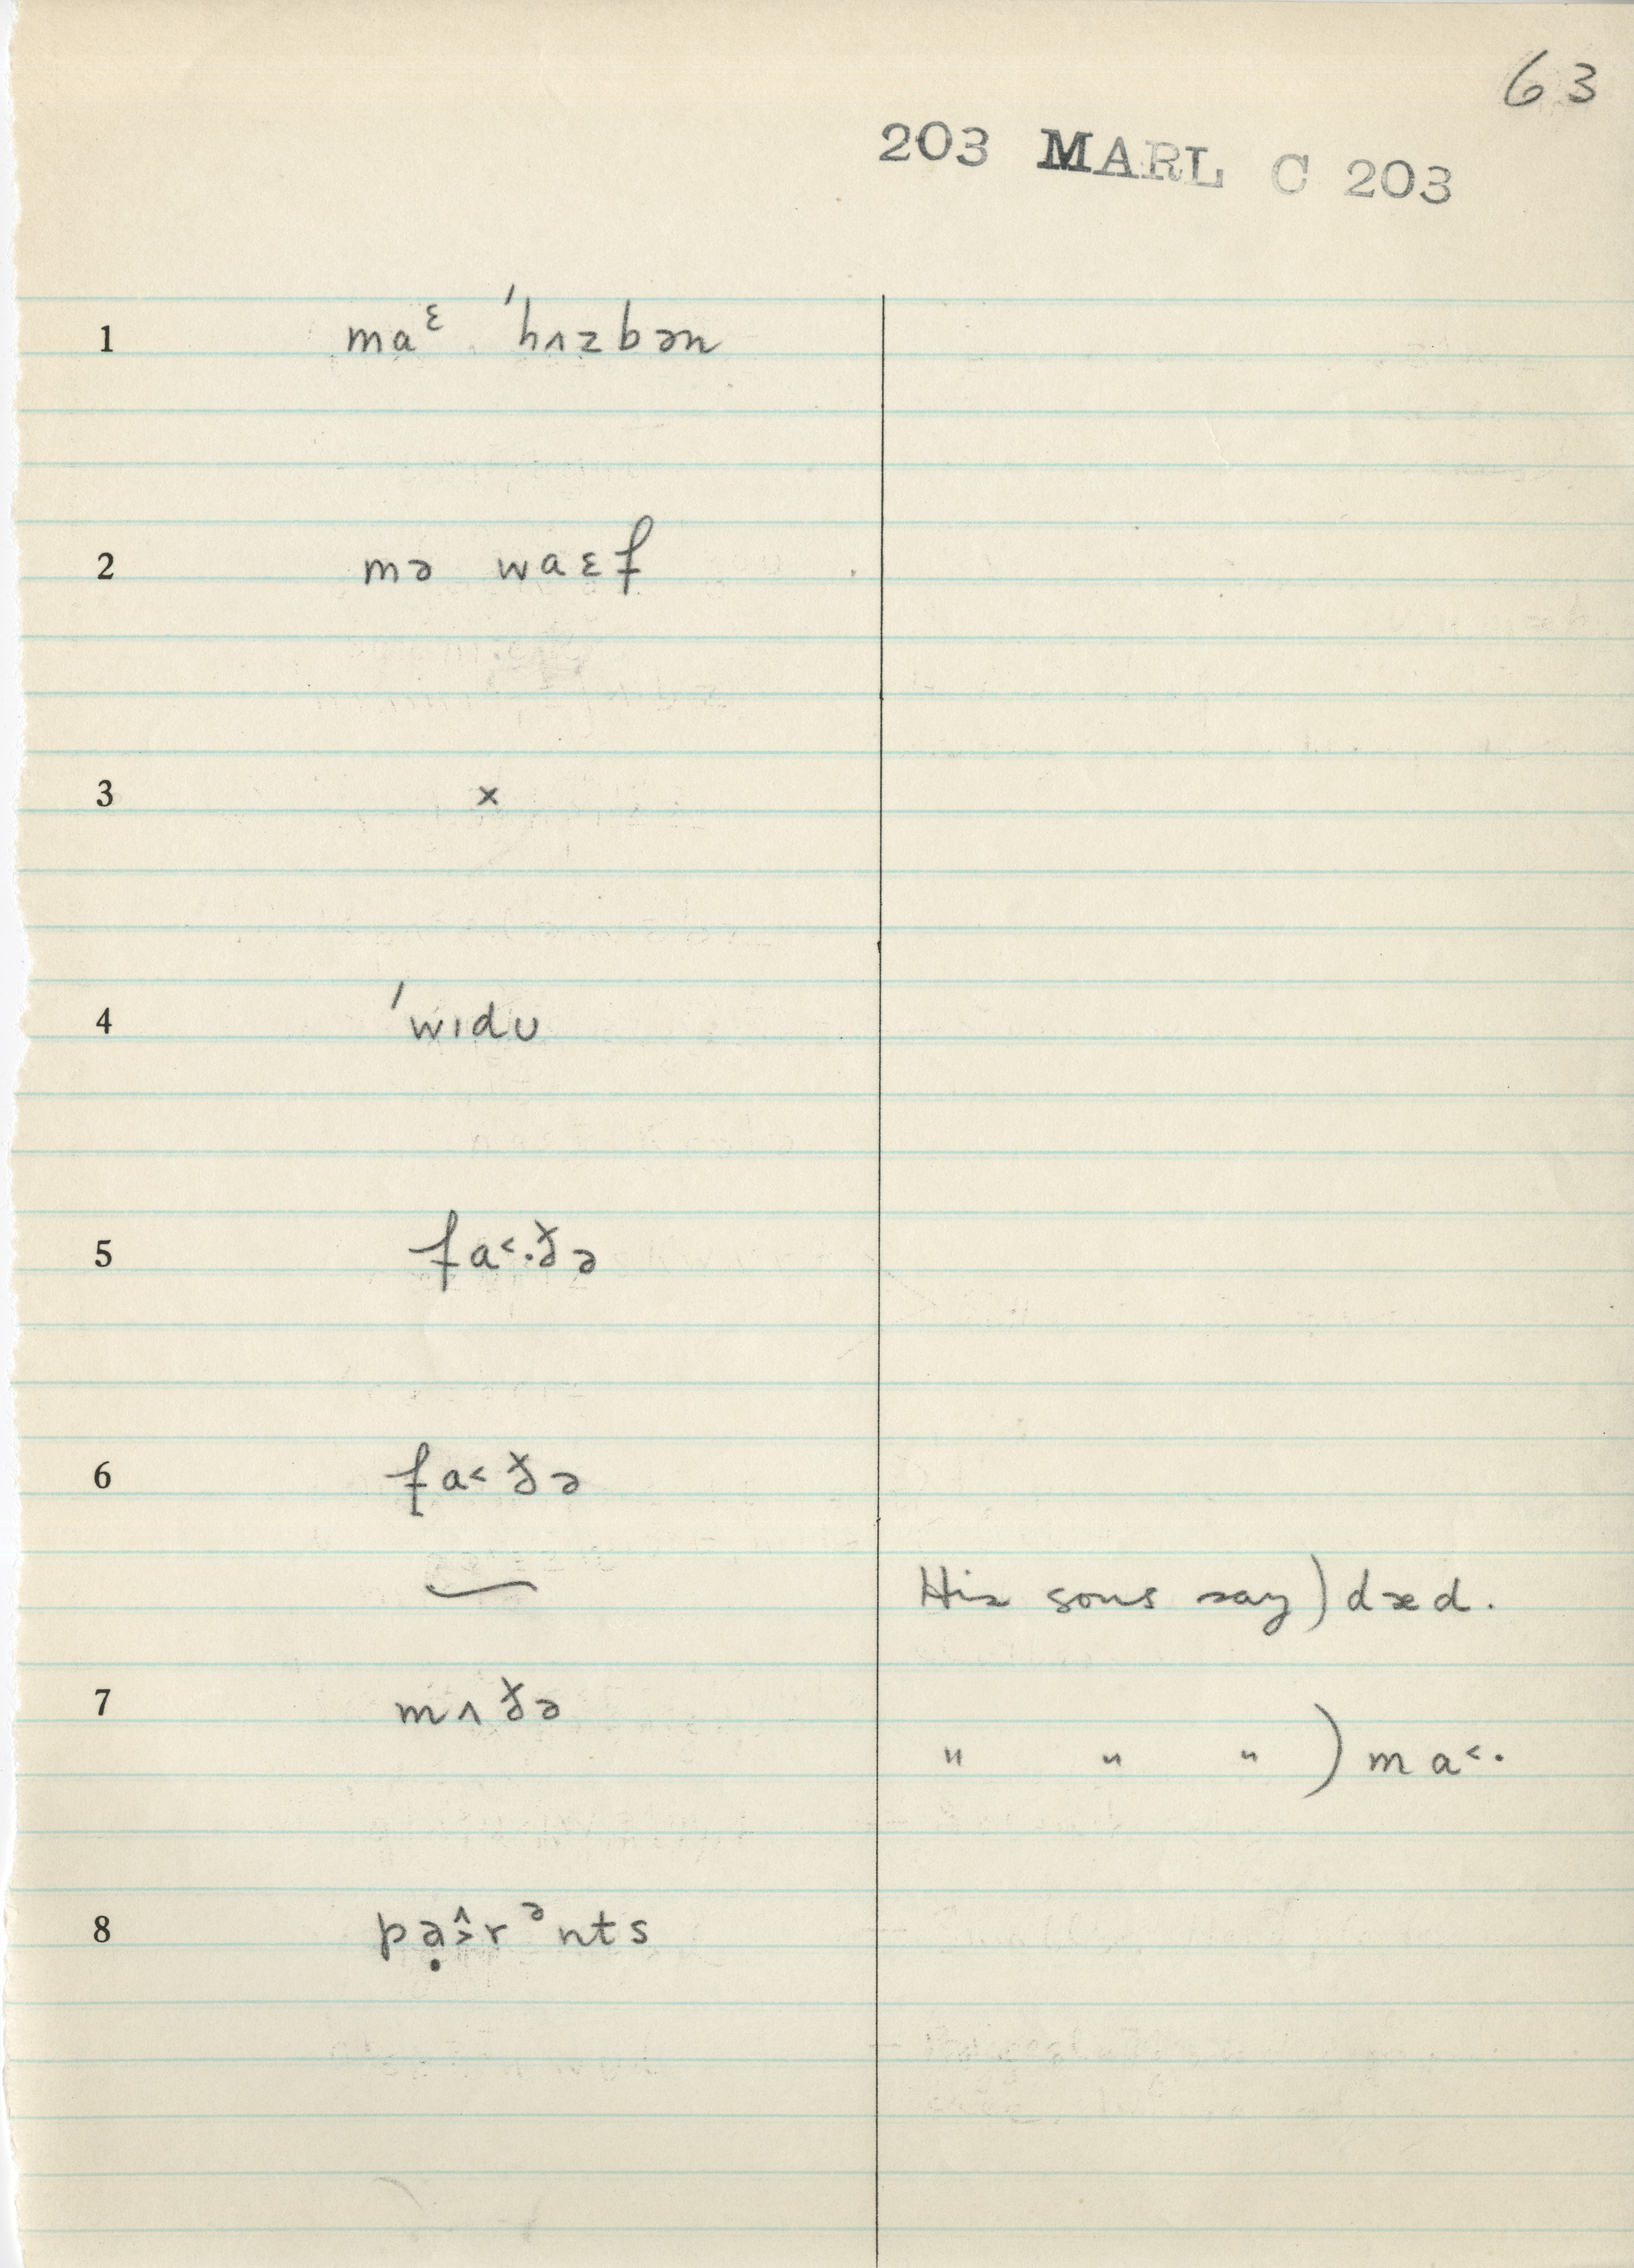 63
203 MARL C 203
1 maᵋ ˈhʌzbən
2 mə waɛf
3 ×
4 ˈwɪdu
5 fa˂·ðə
6 fa˂ðə
His sons say) dæd.
7 mʌðə
" " " ) ma˂·
8 pạ˃̂rᵊnts